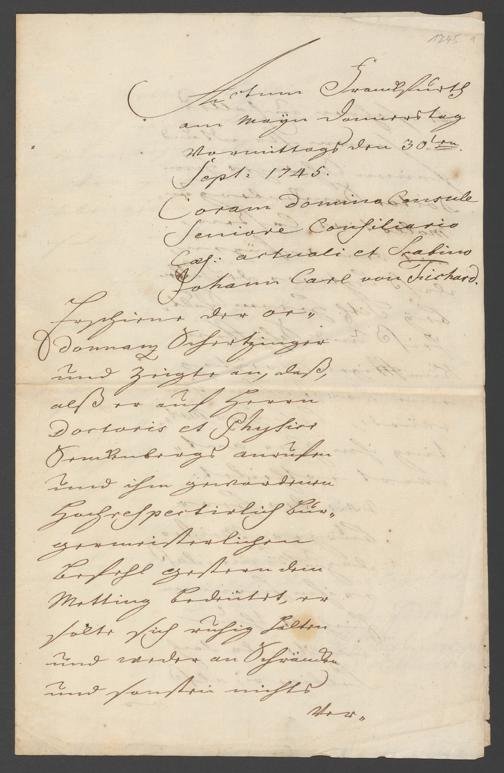 1745
Actum Franckfurth
am Mayn Donnerstag
Vormittags den 30ten
Sept: 1745.
Coram Domino Consule
Seniore Consiliario
Caes: actuali et Scabino
Johann Carl von Fichard.
Erschiene der or=
donnanz Schertzinger
und Zeigte an, daß,
alß er auf Herrn
Doctoris et Physici
Senckenbergs anrufen
und ihm gewordenen
Hochrespectirlich bür=
germeisterlichen
Befehl gestern dem
Metting bedeütet, er
solte sich ruhig halten
und weder an Schräncken
und sonsten nichts
ver=